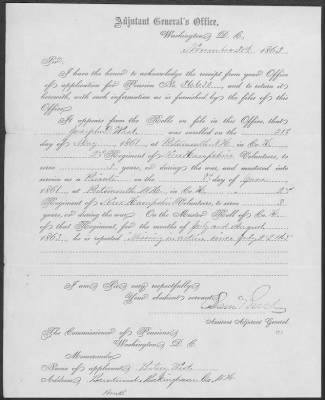 Adjutant General's Office,
Washington, D. C.
November 30th, 1863
Sir:
I have the honor to acknowledge the receipt from your Office
of application for Pension No. and to return it
herewith, with such information as is furnished by the files of this
Office.
It appears from the Rolls on file in this Office, that
Joseph West was enrolled on the 21st
day of May, 1861, at Portsmouth N.H. in Co. K.
2d Regiment of New Hampshire Volunteers, to
serve 3 years, or during the war, and mustered into
service as a Private on the day of June,
1861, at Portsmouth N.H. in Co. K. 2d
Regiment of New Hampshire Volunteers, to serve 3
years, or during the war. On the Muster Roll of Co. K.
of that Regiment, for the months of July and August,
1863, he is reported Missing in action since July 2d 1863
I am, Sir, very respectfully,
Your obedient servant,
Assistant Adjutant General.
The Commissioner of Pensions,
Washington, D. C.
Memoranda:
Name of applicant, West
Address, Rockingham Co. N.H.